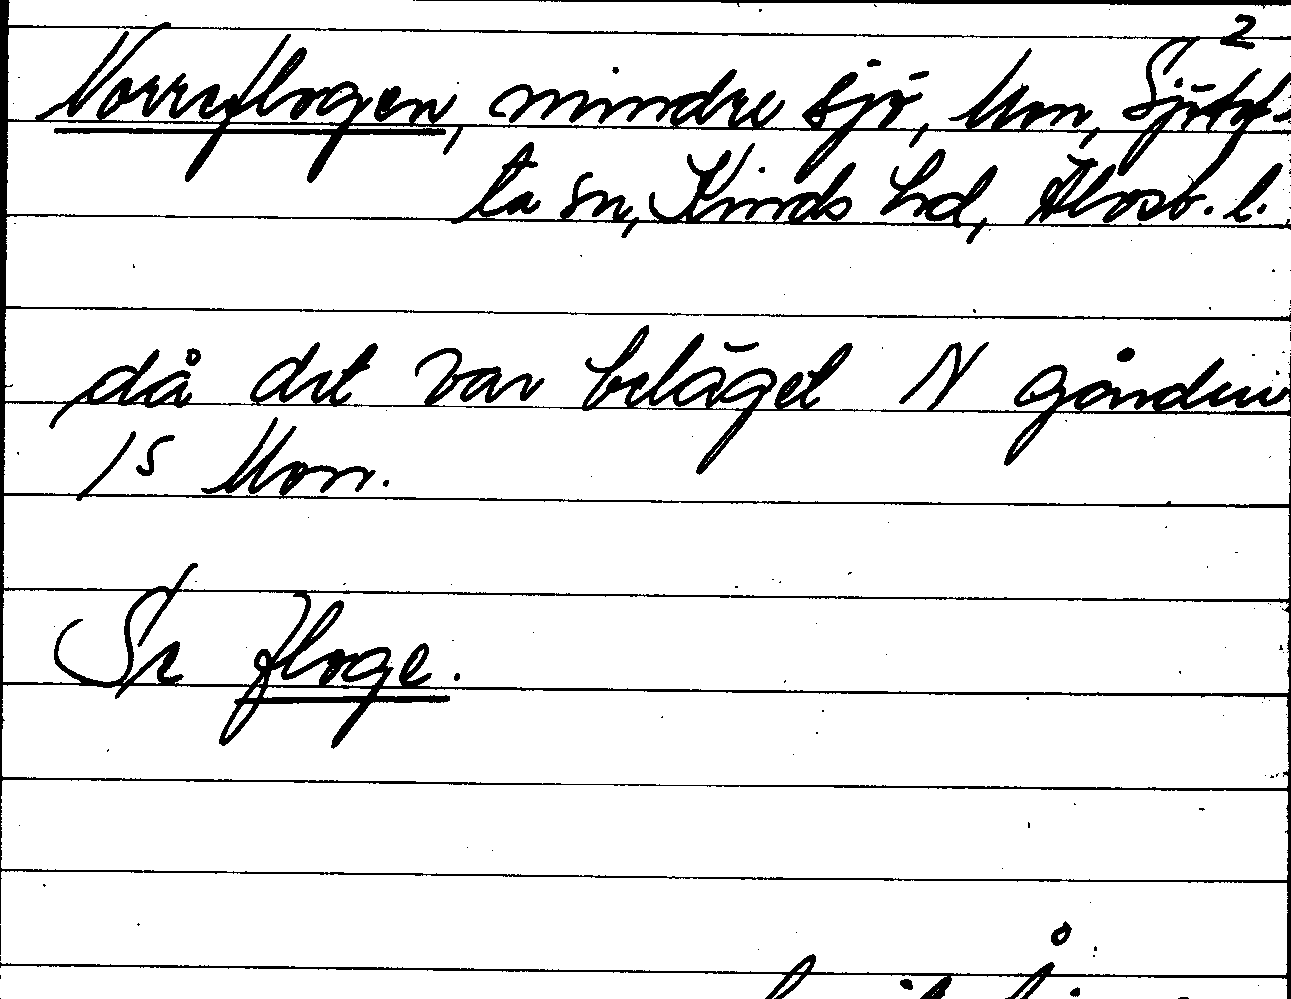 2
Norreflogen, mindre sjö, Mon, Sjötof-
ta sn, Kinds hd, Älvsb. l.
då det var beläget N gården
1⁵ Mon.
Se floge.